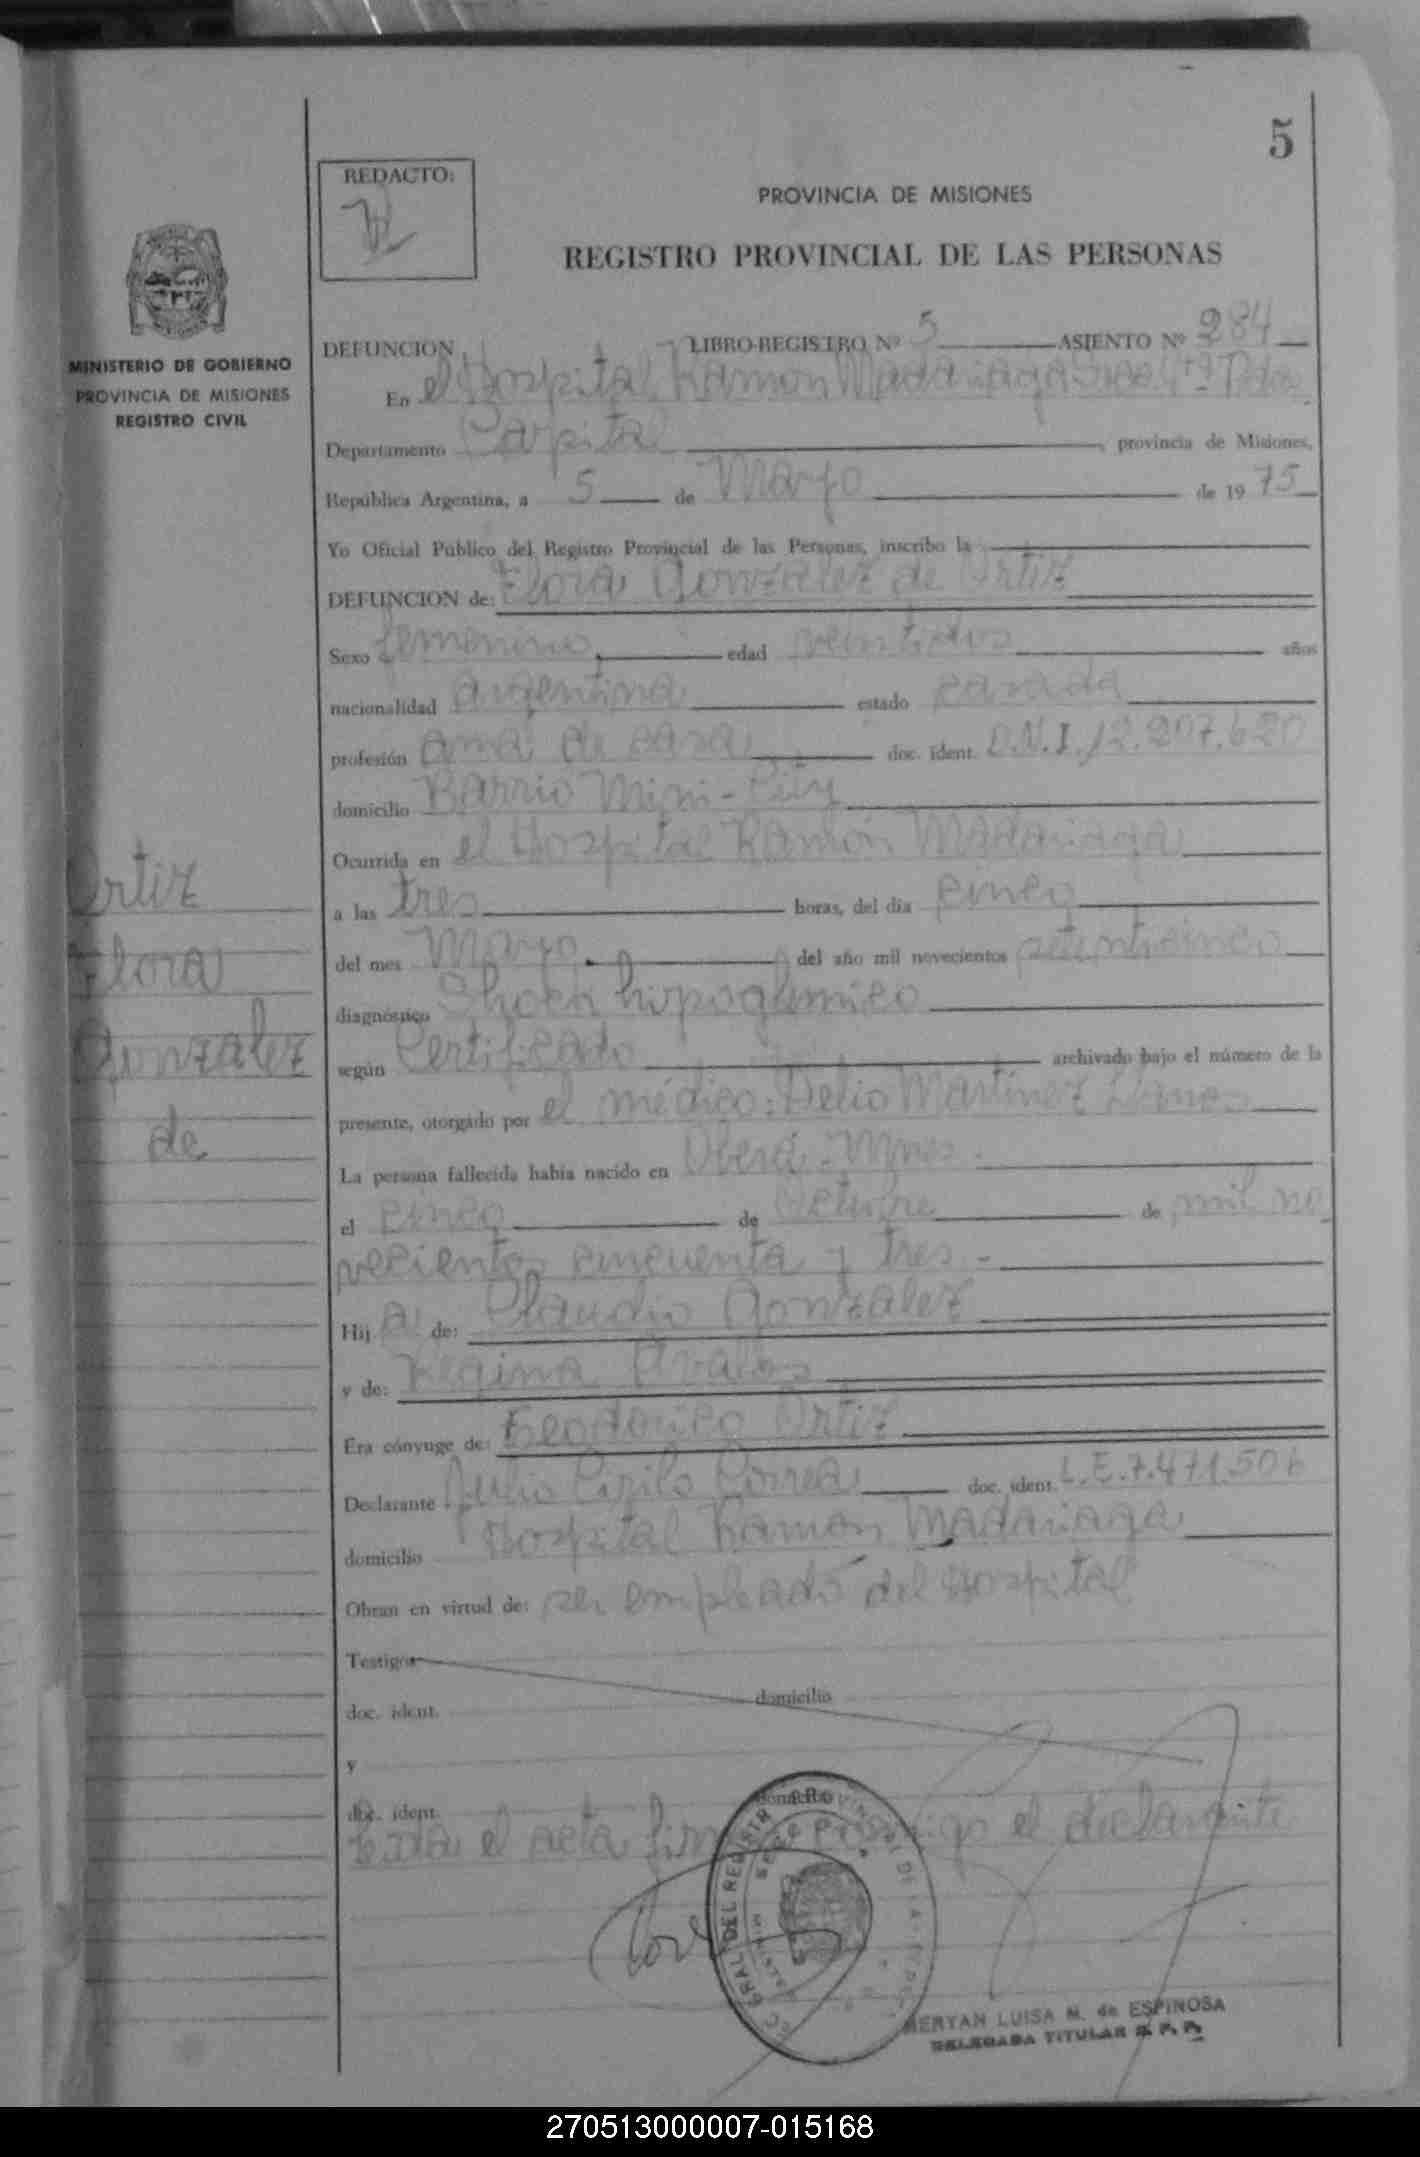 5
REDACTO:
PROVINCIA DE MISIONES
REGISTRO PROVINCIAL DE LAS PERSONAS
MINISTERIO DE GOBIERNO
PROVINCIA DE MISIONES
REGISTRO CIVIL
DEFUNCION LIBRO-REGISTRO Nº 5 ASIENTO Nº 284
En el Hospital Ramón Madariaga
Departamento Capital provincia de Misiones,
República Argentina, a 5 de Marzo de 1975
Yo Oficial Público del Registro Provincial de las Personas, inscribo la
DEFUNCION de: Flora Gonzalez de Ortiz
Sexo femenino edad veintidos años
nacionalidad argentina estado casada
profesión ama de casa doc. ident. D.N.I. 12.207.620
domicilio Barrio Mini-City
Ocurrida en el Hospital Ramón Madariaga
a las tres horas, del día cinco
del mes Marzo del año mil novecientos setenticinco
diagnóstico Shock hipoglumico
según Certificado archivado bajo el número de la
presente, otorgado por el médico: Delio Martínez
La persona fallecida había nacido en Oberá-Mnes.
el cinco de Octubre de mil no
vecientos cincuenta y tres-
Hij a de: Claudio Gonzalez
y de: Regina Avalos
Era cónyuge de: Teodorico Ortiz
Declarante Julio Cirilo Correa doc. ident. L.E.7.471.506
domicilio Hospital Ramón Madariaga
Obran en virtud de: ser empleado del Hospital
Testigos
doc. ident. domicilio
y
doc. ident. domicilio
Leida el acta firma conmigo el declarante
Ortiz
Flora
Gonzalez
de
MERYAN LUISA M. de ESPINOSA
DELEGADA TITULAR R. P. P.
270513000007-015168